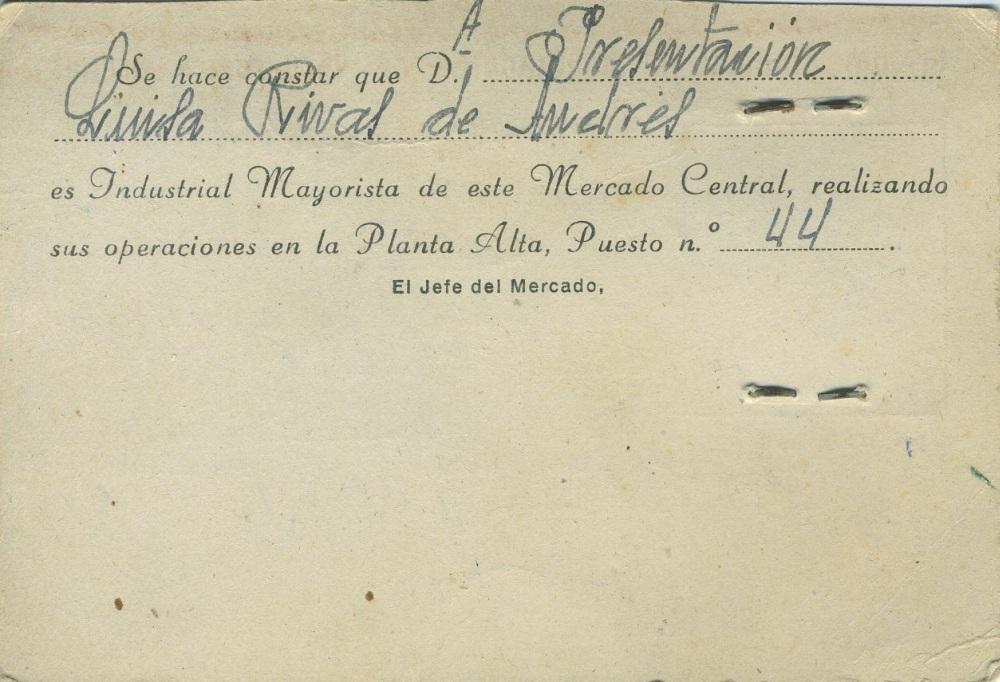 Se hace constar que D.ª Presentación
Luisa Rivas de Andrés
es Industrial Mayorista de este Mercado Central, realizando
sus operaciones en la Planta Alta, Puesto n.º 44.
El Jefe del Mercado,